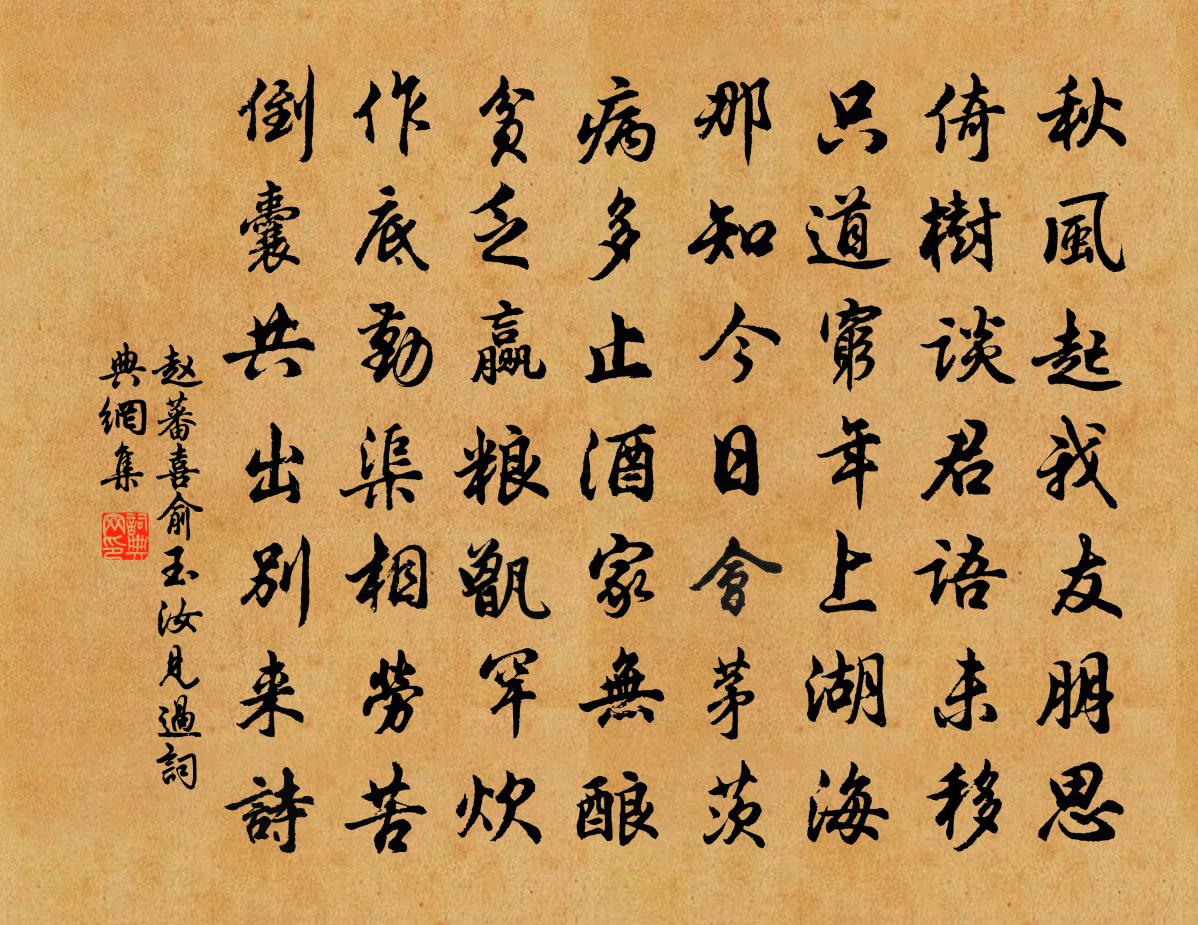 秋風起我友朋思
倚樹談君語未移
只道窮年上湖海
那知今日會茅茨
病多止酒家無酿
貧乏贏粮甑罕炊
作底勤渠相勞苦
倒囊共出別来詩
赵蕃喜俞玉汝見過詞
典網集
詞典
网印